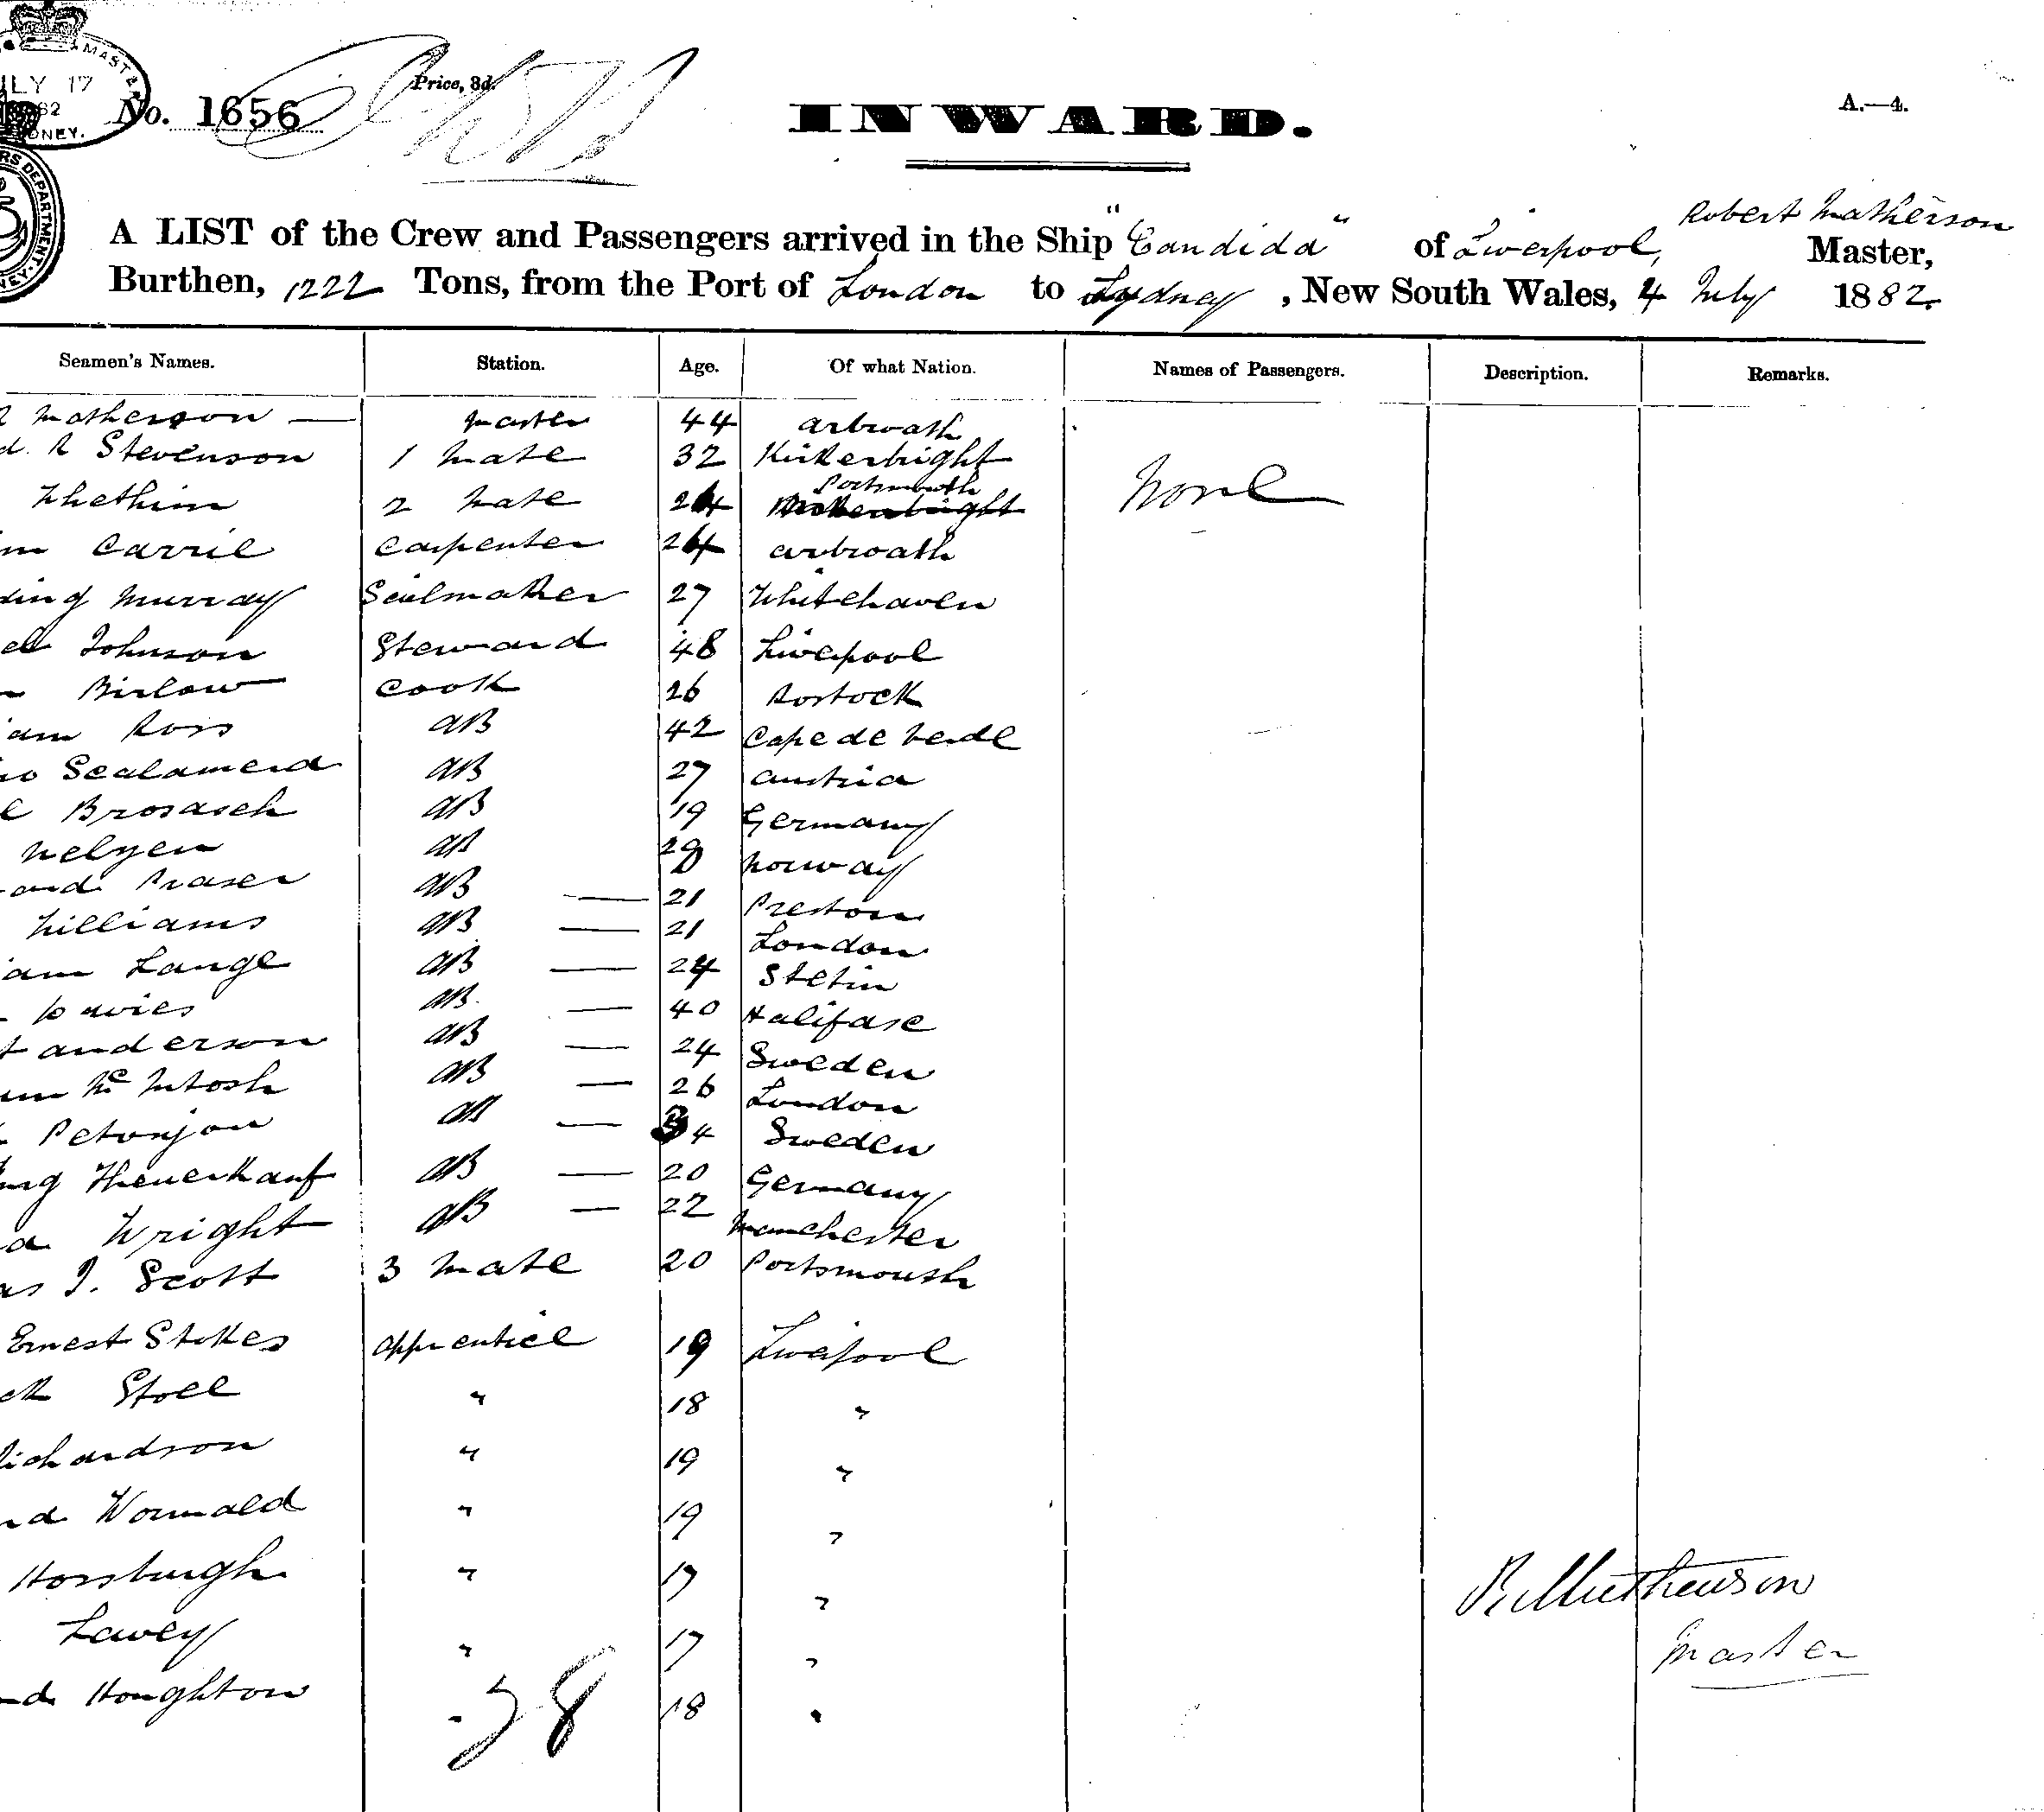 MAST
JULY 17
No. 1656
Price, 3d.
INWARD.
A.—4.
RS DEPARTMENT
Robert Matherson
A LIST of the Crew and Passengers arrived in the Ship "Candida" of Liverpool, Master,
Burthen, 1222 Tons, from the Port of London to Sydney, New South Wales, 4 July 1882.
Seamen's Names. Station. Age. Of what Nation. Names of Passengers. Description. Remarks.
Matherson — master 44 arbroath
R Stevenson 1 Mate 32 Kirkerbright None
Whethim 2 Mate 24 Portsmouth
Carrie Carpenter 24 arbroath
Murray Sailmaker 27 Whitehaven
Johnson Steward 48 Liverpool
Birlow Cook 26 Rostock
iam Ross AB 42 Cape de Verde
Scalamera AB 27 austria
Brosasch AB 19 Germany
Nelyen AB 29 Norway
Fraser AB — 21 Preston
Williams AB — 21 London
iam Lange AB — 24 Stetin
Davies AB — 40 Halifax
anderson AB — 24 Sweden
Mc Intosh AB — 26 London
Petonjon AB — 34 Sweden
Theuerkauf AB — 20 Germany
Wright AB — 22 Manchester
as J. Scott 3 Mate 20 Portsmouth
Ernest Stokes apprentice 19 Liverpool
Stoll " 18 "
Richardson " 19 "
Wormald " 19 "
Horsburgh " 17 "
R Mathewson
Lavey " 17 "
Master
Houghton " 18 "
28